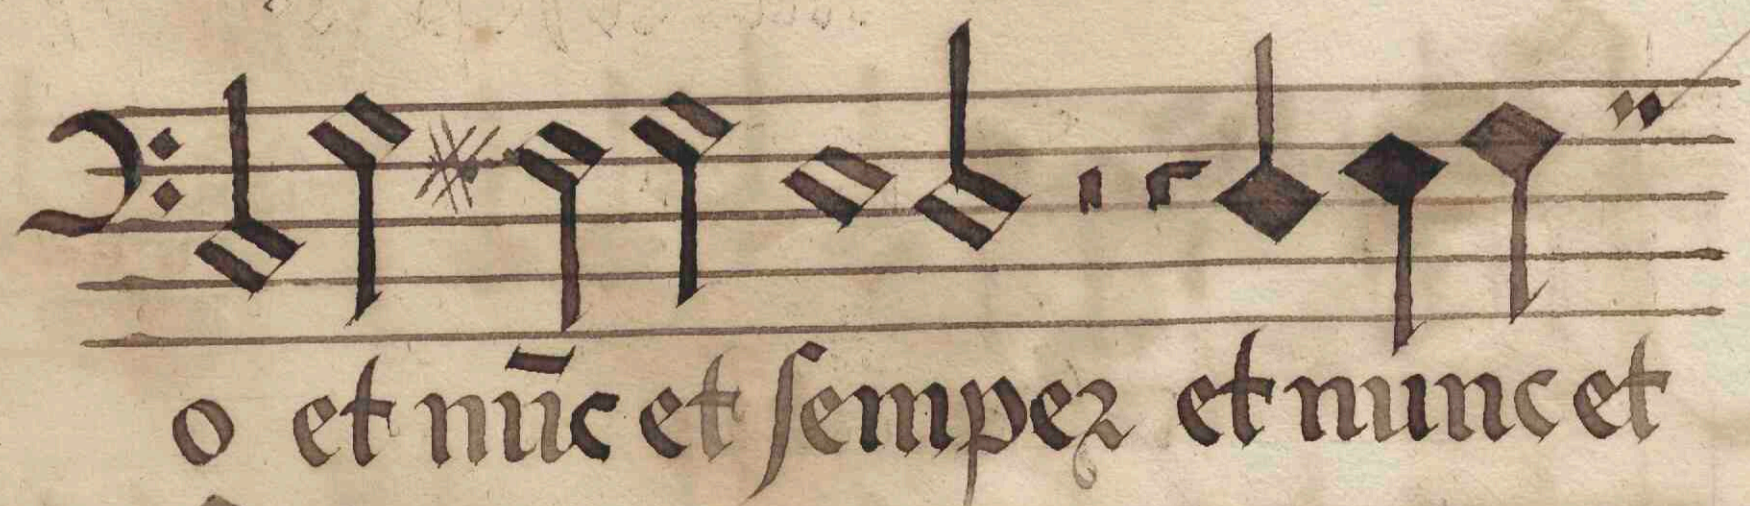 o et nūc et ſemper et nunc et